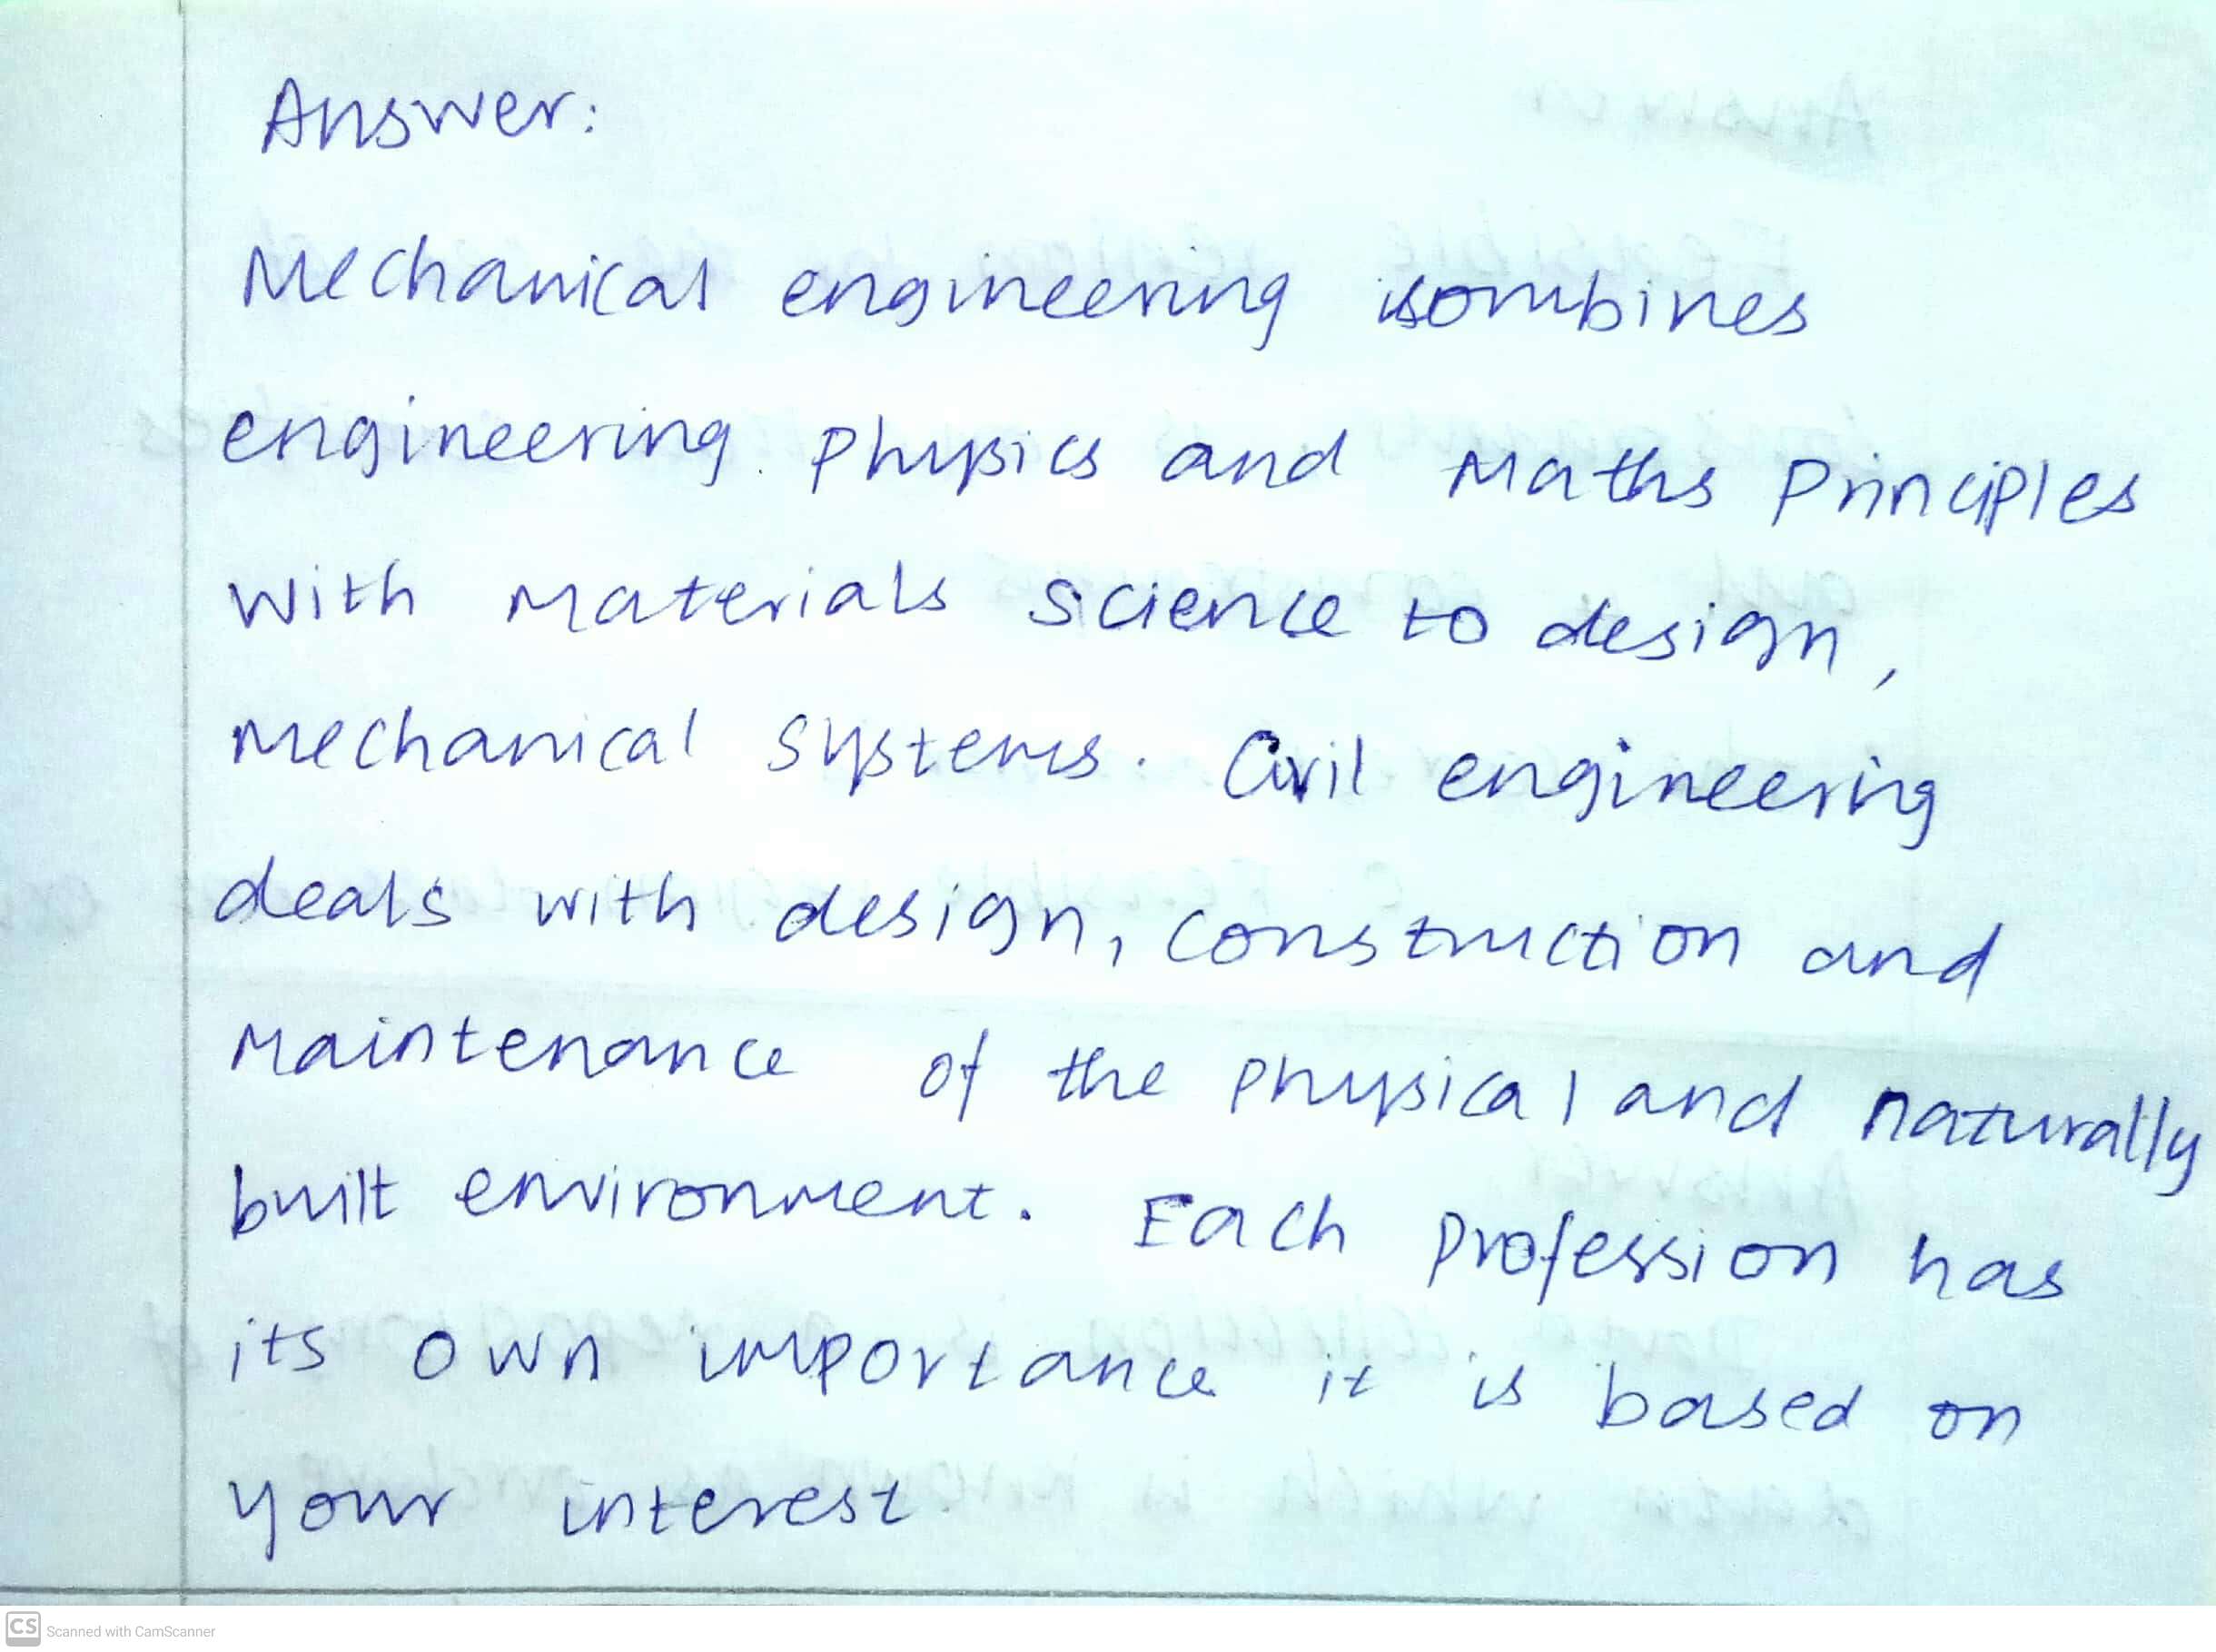 Answer:
Mechanical engineering combines
engineering. Physics and Maths Principles
with Materials science to design,
Mechanical systems. Civil engineering
deals with design, construction and
Maintenance of the physical and naturally
built environment. Each profession has
its own importance it is based on
your interest.
CS Scanned with CamScanner